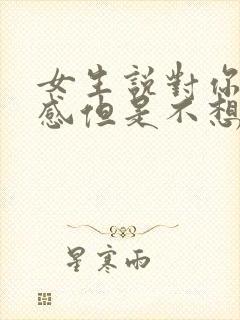 女生說對你
感但是不想
星寒雨